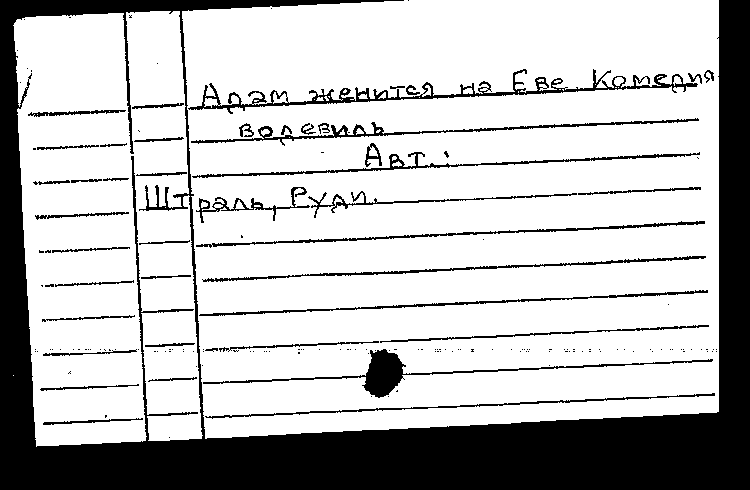 Адам женится на Еве Комедия
водевиль
Авт.:
Штраль, Руди.